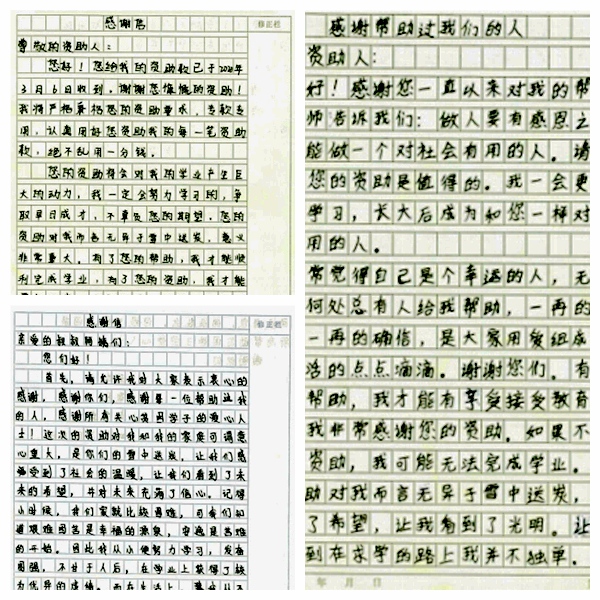 感谢信
修正栏
尊敬的资助人：
您好！您给我的资助收已于2020年
3月6日收到，谢谢您慷慨的资助！
我将严格秉格您的资助要求，专款专
用，认真用好您资助我的每一笔资助
款，绝不乱用一分钱。
您的资助将会对我的学业产生巨
大的动力，我一定会努力学习的，争
取早日成才，不辜负您的期望，您的
资助对我而言无异于雪中送炭，意义
非常重大。有了您的帮助，我才能顺
利完成学业，有了您的资助，我才能
感谢信
修正栏
亲爱的叔叔阿姨们：
您们好！
首先，请允许我对大家表示衷心的
感谢，感谢你们，感谢每一位帮助过我
的人，感谢所有关心贫困学子的爱心人
士！这次的资助对我和我的家庭可谓意
心重大，是你们的雪中送炭，让我们感
受到了社会的温暖，让我们看到了未
来的希望，并对未来充满了信心。记得
小时候，我们家就比较困难，可我们知
道艰难困苦是幸福的源泉，安逸是苦难
的开始。因此我从小便努力学习，发奋
图强，不甘于人后，在学业上获得了较
为优异的成绩。而在生活上，
感谢帮助过我们的人
资助人：
好！感谢您一直以来对我的帮
师告诉我们：做人要有感恩之
能做一个对社会有用的人。请
您的资助是值得的。我一会更
学习，长大后成为和您一样对
用的人。
常觉得自己是个幸运的人，无
何处总有人给我帮助，一再的
一再的确信，是大家用爱组成
浩的点点滴滴。谢谢您们。有
帮助，我才能有享受接受教育
我非常感谢您的资助。如果不
资助，我可能无法完成学业。
助对我而言无异于雪中送炭，
了希望，让我看到了光明。让
到在求学的路上我并不独单。
年 月 日